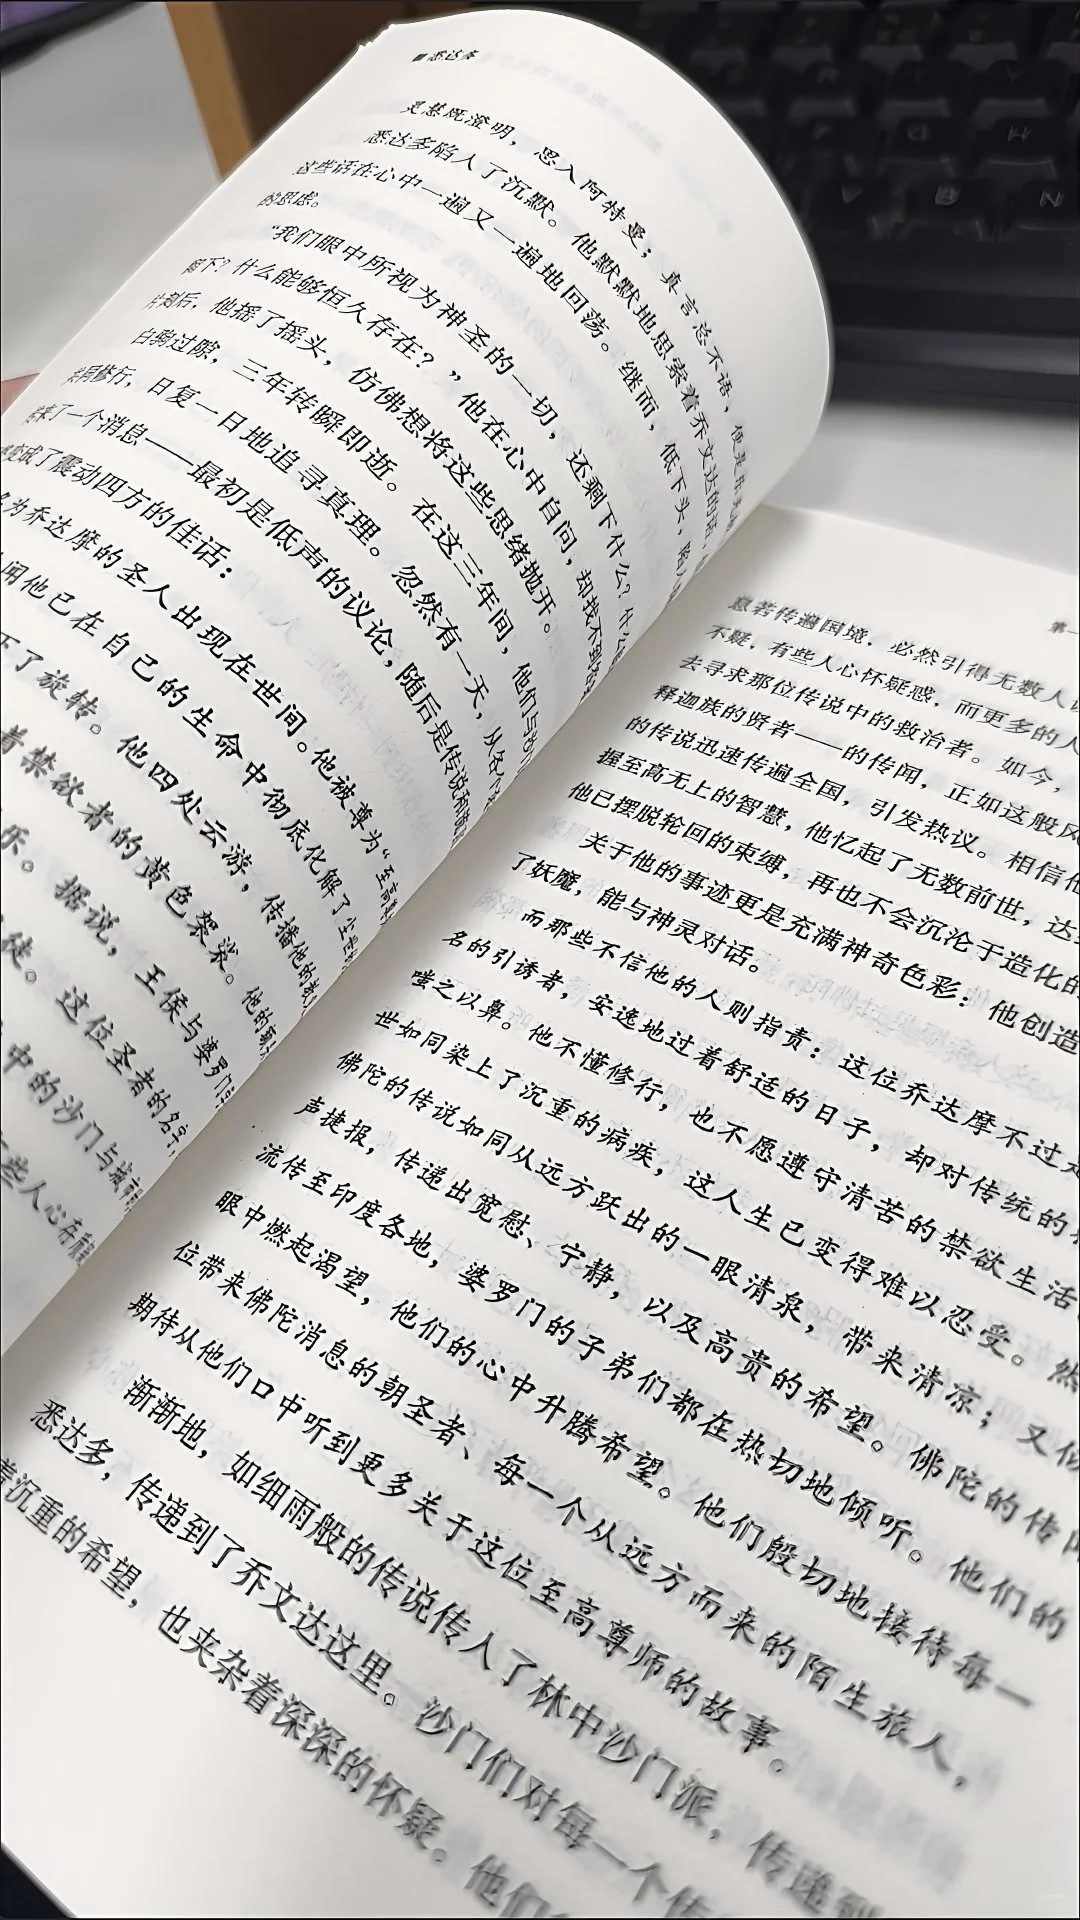 悉达多
灵慧既澄明，思入阿特曼；真言总不语，便是
悉达多陷入了沉默。他默默地思索着乔文达的话，
这些话在心中一遍又一遍地回荡。继而，低下头，陷入
的思虑。
“我们眼中所视为神圣的一切，还剩下什么？什么
下？什么能够恒久存在？”他在心中自问，却找不到答
片刻后，他摇了摇头，仿佛想将这些思绪抛开。
白驹过隙，三年转瞬即逝。在这三年间，他们与
共同修行，日复一日地追寻真理。忽然有一天，从各个
来了一个消息——最初是低声的议论，随后是传说和
变成了震动四方的佳话：
名为乔达摩的圣人出现在世间。他被尊为“至高
闻他已在自己的生命中彻底化解了尘世
下了旋转。他四处云游，传播他的教
着禁欲者的黄色袈裟。他的
乐。据说，王侯与婆罗门
徒。这位圣者的名字，
中的沙门与
些人心存
第一
息若传遍国境，必然引得无数人
不疑，有些人心怀疑惑，而更多的人
去寻求那位传说中的救治者。如今，
释迦族的贤者——的传闻，正如这般风
的传说迅速传遍全国，引发热议。相信他
握至高无上的智慧，他忆起了无数前世，达
他已摆脱轮回的束缚，再也不会沉沦于造化的
关于他的事迹更是充满神奇色彩：他创造
了妖魔，能与神灵对话。
而那些不信他的人则指责：这位乔达摩不过是
名的引诱者，安逸地过着舒适的日子，却对传统的
嗤之以鼻。他不懂修行，也不愿遵守清苦的禁欲生活
世如同染上了沉重的病疾，这人生已变得难以忍受。然
佛陀的传说如同从远方跃出的一眼清泉，带来清凉；又似
声捷报，传递出宽慰、宁静，以及高贵的希望。佛陀的传
流传至印度各地，婆罗门的子弟们都在热切地倾听。他们的
眼中燃起渴望，他们的心中升腾希望。他们殷切地接待每一
位带来佛陀消息的朝圣者、每一个从远方而来的陌生旅人，
期待从他们口中听到更多关于这位至高尊师的故事。
渐渐地，如细雨般的传说传入了林中沙门派，传递到
悉达多，传递到了乔文达这里。沙门们对每一个传
着沉重的希望，也夹杂着深深的怀疑。他们